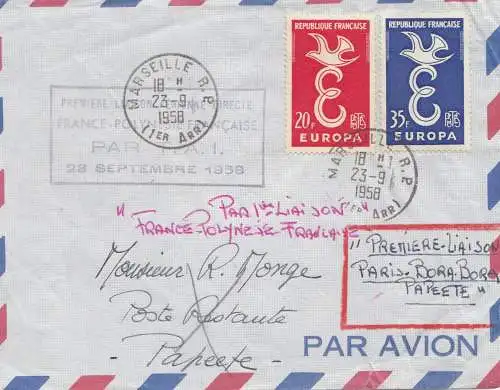 MARSEILLE R.P.
18 H
23-9
1958
(1er ARRt)
PREMIÈRE LIAISON AÉRIENNE DIRECTE
FRANCE-POLYNÉSIE FRANÇAISE
PAR T.A.I.
23 SEPTEMBRE 1958
REPUBLIQUE FRANÇAISE
20F
EUROPA
REPUBLIQUE FRANÇAISE
35F
EUROPA
MARSEILLE R.P.
18 H
23-9
1958
(1er ARRt)
" PAR 1ère LIAISON "
FRANCE-POLYNESIE FRANCAISE
" PREMIERE-LIAISON
PARIS-BORA-BORA
PAPEETE "
Monsieur R. Monge
Poste Restante
- Papeete -
PAR AVION